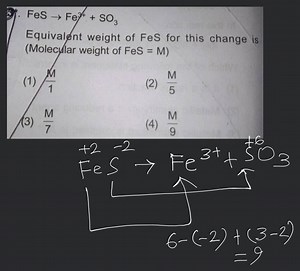 FeS → Fe³⁺ + SO₃
Equivalent weight of FeS for this change is
(Molecular weight of FeS = M)
(1) M/1 (2) M/5
(3) M/7 (4) M/9
+2 -2 +6
FeS → Fe³⁺ + SO₃
6-(-2) + (3-2)
= 9